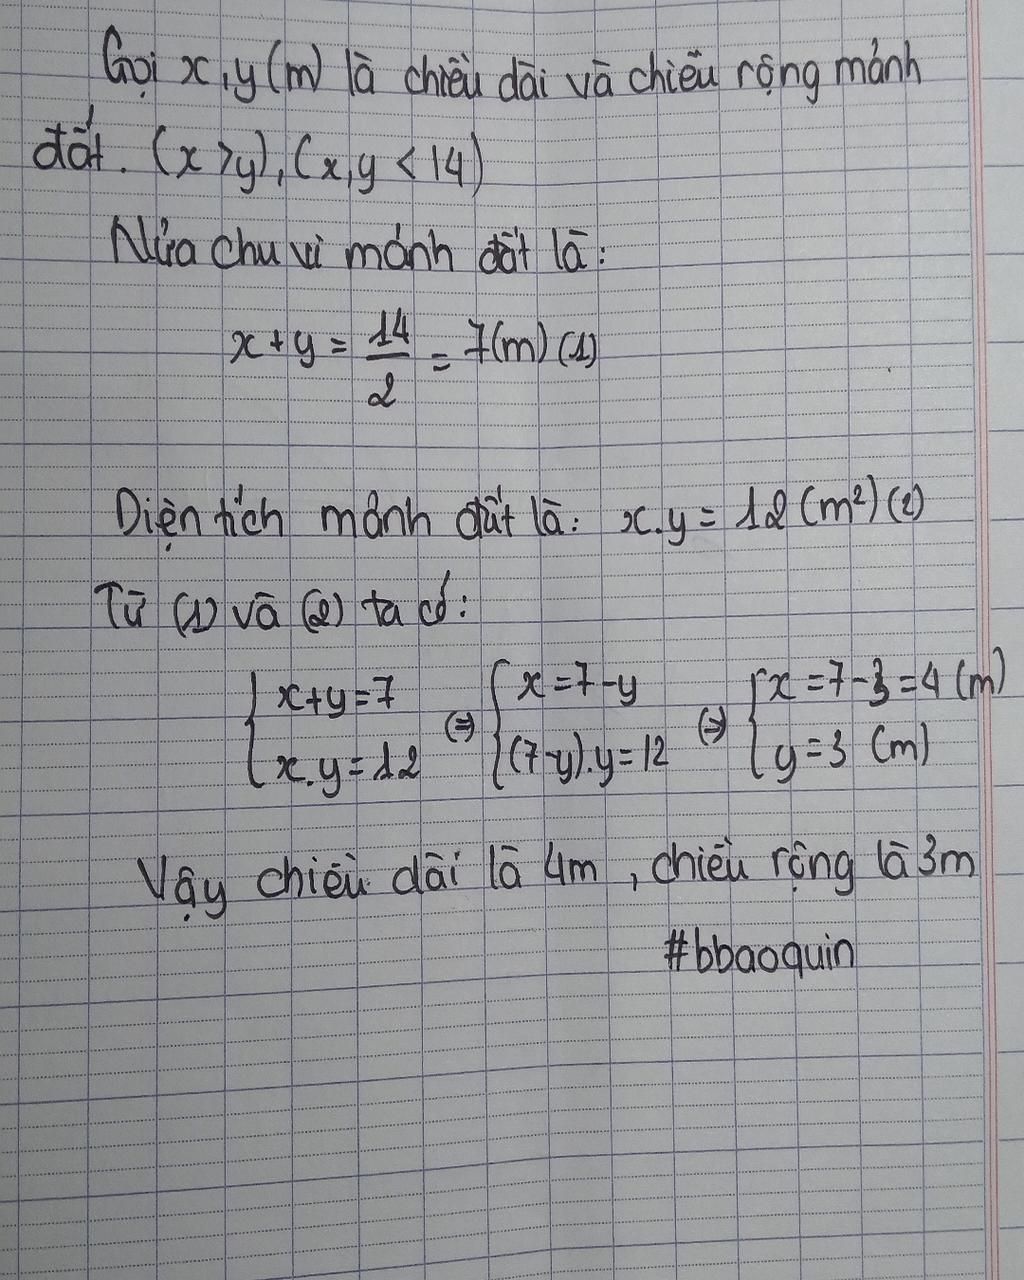 Gọi x,y (m) là chiều dài và chiều rộng mảnh
đất. (x > y), (x,y < 14)
Nửa chu vi mảnh đất là:
x + y = 14/2 = 7(m) (1)
Diện tích mảnh đất là: x.y = 12 (m²) (2)
Từ (1) và (2) ta có:
{ x+y=7 ⇔ { x=7-y ⇔ { x=7-3=4 (m)
{ x.y=12 { (7-y).y=12 { y=3 (m)
Vậy chiều dài là 4m, chiều rộng là 3m
#bbaoquin